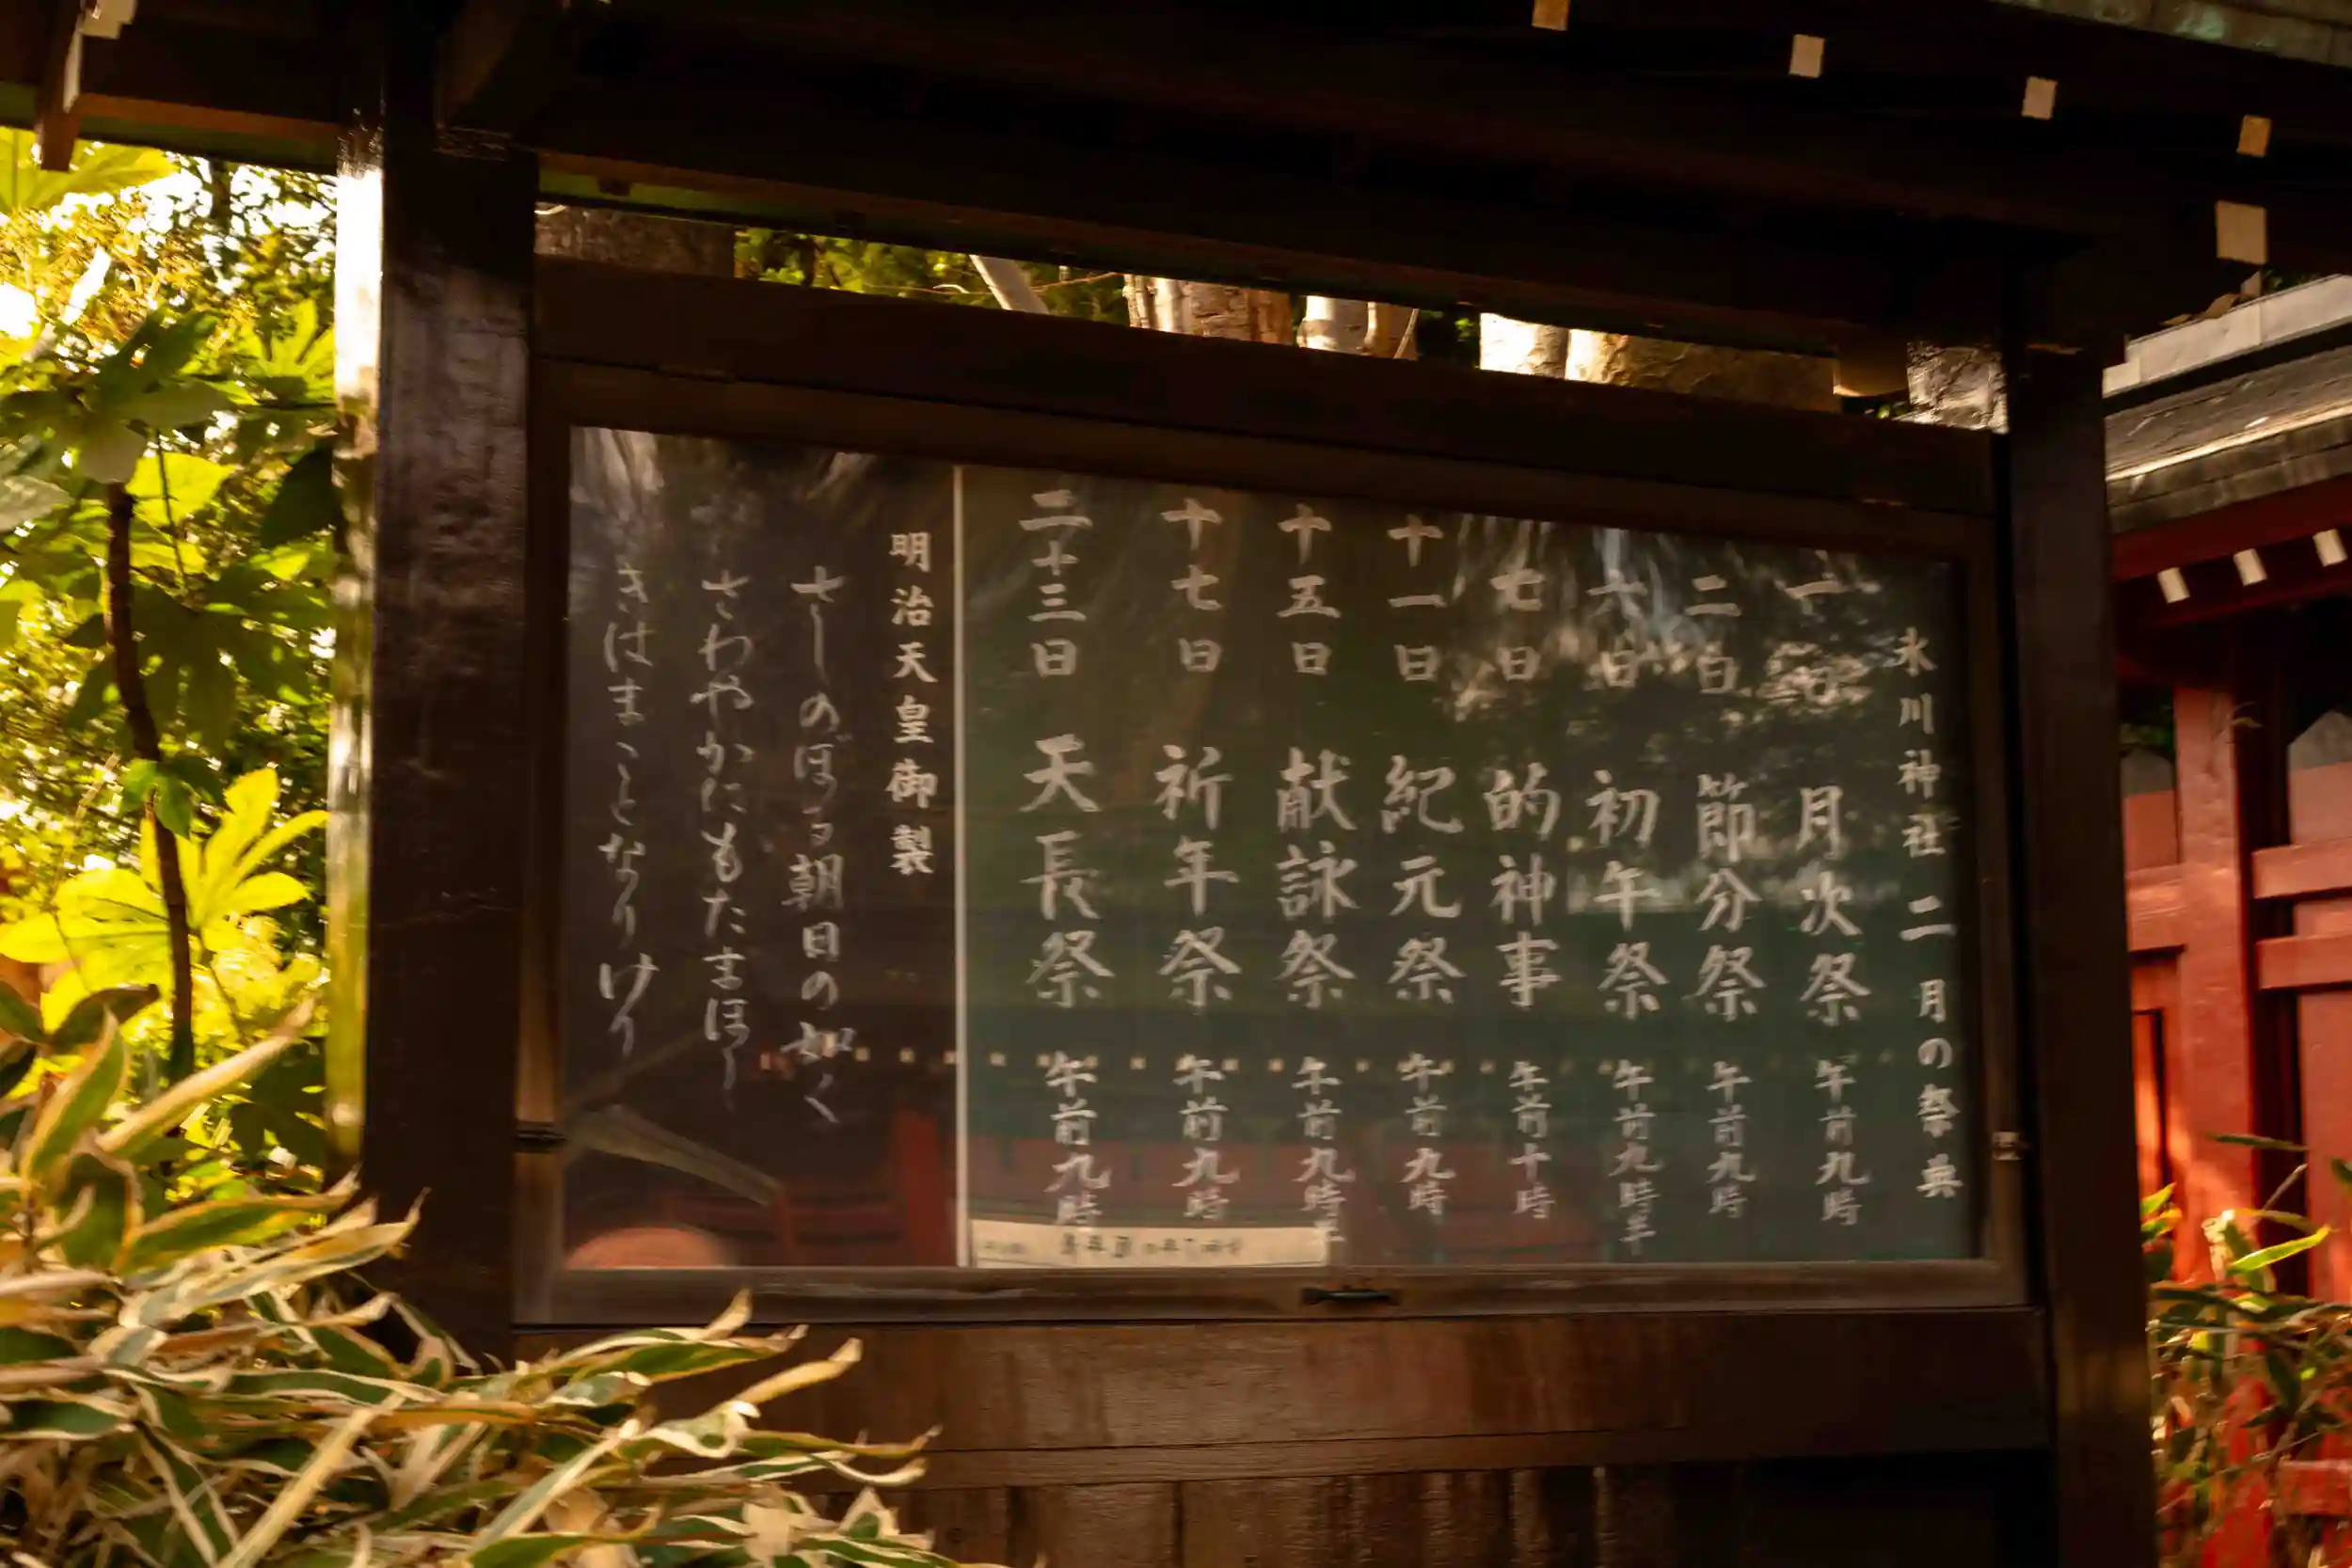 氷川神社 二月の祭典
一日 月次祭 午前九時
二日 節分祭 午前九時
六日 初午祭 午前九時半
七日 的神事 午前十時
十一日 紀元祭 午前九時
十五日 献詠祭 午前九時半
十七日 祈年祭 午前九時
二十三日 天長祭 午前九時
明治天皇御製
さしのぼる朝日の如く
さわやかにもたまほし
きはまことなりけり